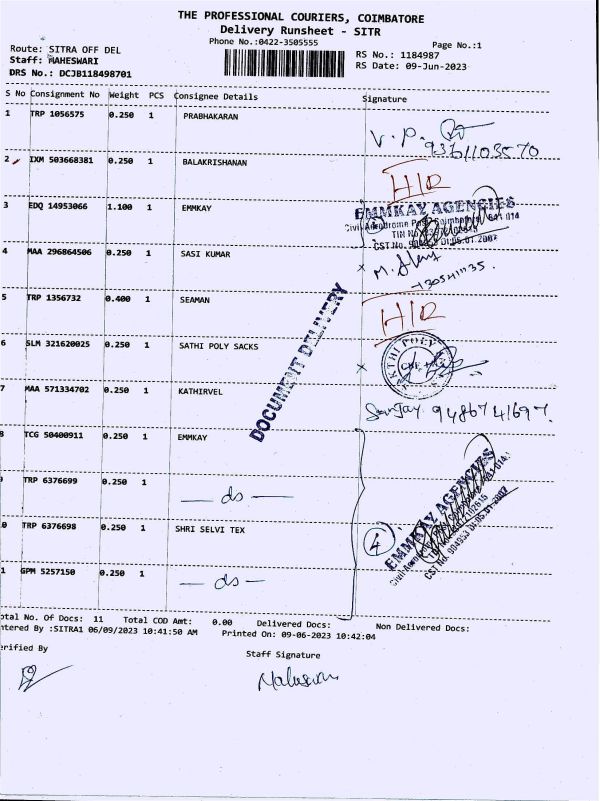 THE PROFESSIONAL COURIERS, COIMBATORE
Delivery Runsheet - SITR
Phone No.:0422-3505555
Page No.:1
Route: SITRA OFF DEL
RS No.: 1184987
Staff: MAHESWARI
RS Date: 09-Jun-2023
DRS No.: DCJB118498701
S No Consignment No Weight PCS Consignee Details Signature
1 TRP 1056575 0.250 1 PRABHAKARAN
V. P.
9361103570
2 IXM 503668381 0.250 1 BALAKRISHANAN
H/R
3 EDQ 14953066 1.100 1 EMMKAY
EMMKAY AGENCIES
4 MAA 296864506 0.250 1 SASI KUMAR
5 TRP 1356732 0.400 1 SEAMAN
H/R
DOCUMENT DELIVERY
6 SLM 321620025 0.250 1 SATHI POLY SACKS
7 MAA 571334702 0.250 1 KATHIRVEL
Sanjay 9486741697.
8 TCG 50400911 0.250 1 EMMKAY
EMMKAY AGENCIES
TRP 6376699 0.250 1
— ds —
0 TRP 6376698 0.250 1 SHRI SELVI TEX
4
1 GPM 5257150 0.250 1
— ds —
otal No. Of Docs: 11 Total COD Amt: 0.00 Delivered Docs: Non Delivered Docs:
ntered By :SITRA1 06/09/2023 10:41:50 AM Printed On: 09-06-2023 10:42:04
erified By
Staff Signature